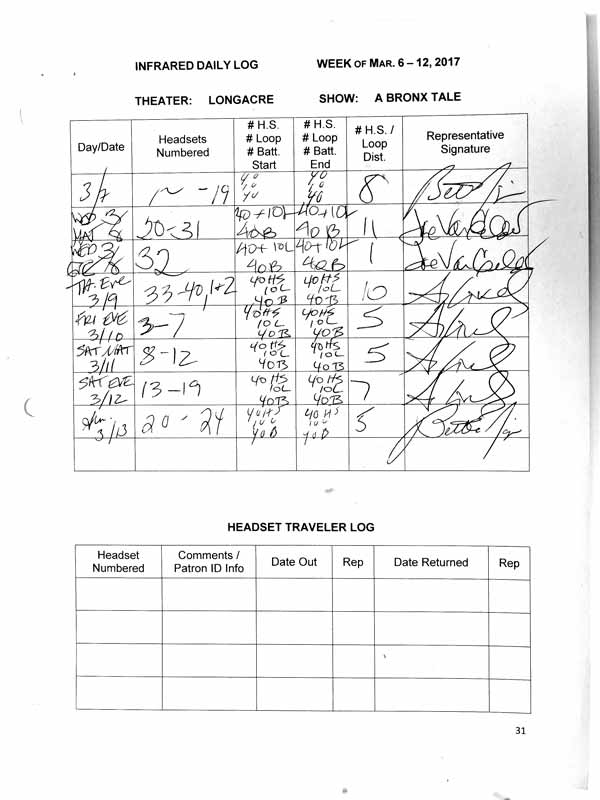 INFRARED DAILY LOG WEEK OF MAR. 6 – 12, 2017
THEATER: LONGACRE SHOW: A BRONX TALE
Day/Date Headsets Numbered # H.S. # Loop # Batt. Start # H.S. # Loop # Batt. End # H.S. / Loop Dist. Representative Signature
3/7 -19 40 10 40 40 10 40 8
WED 3/8 MAT 20-31 40+10L 40B 40+10L 40B 11
WED 3/8 EVE 32 40+10L 40B 40+10L 40B 1
TH. EVE 3/9 33-40,1+2 40HS 10L 40B 40HS 10L 40B 10
FRI EVE 3/10 3-7 40HS 10L 40B 40HS 10L 40B 5
SAT MAT 3/11 8-12 40HS 10L 40B 40HS 10L 40B 5
SAT EVE 3/12 13-19 40HS 10L 40B 40HS 10L 40B 7
Sun. 3/13 20-24 40HS 40B 40HS 40B 5
HEADSET TRAVELER LOG
Headset Numbered Comments / Patron ID Info Date Out Rep Date Returned Rep
31